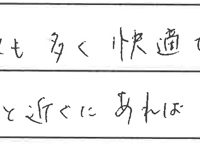 も多く快適
と近くにあれば